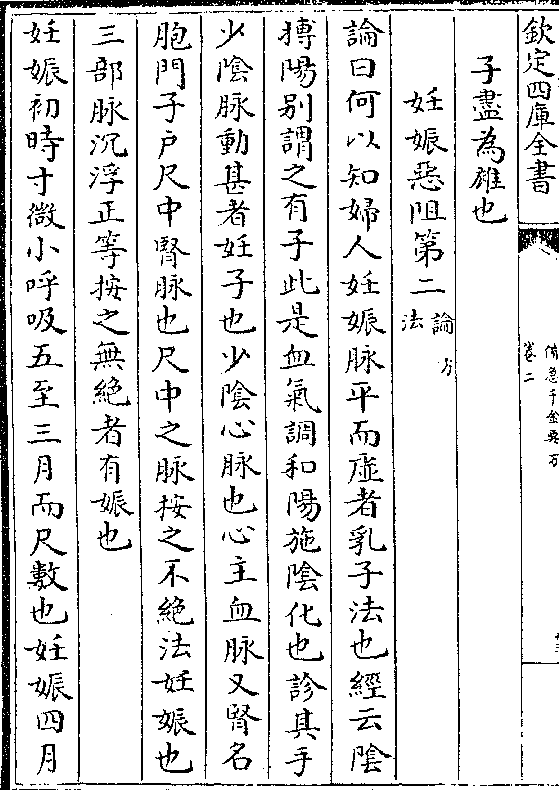 欽定四庫全書
備急千金要方
卷二
子盡為雄也
妊娠惡阻第二論方法
論曰何以知婦人妊娠脉平而虛者乳子法也經云陰
搏陽别謂之有子此是血氣調和陽施陰化也診其手
少陰脉動甚者妊子也少陰心脉也心主血脉又腎名
胞門子户尺中腎脉也尺中之脉按之不絶法妊娠也
三部脉沉浮正等按之無絶者有娠也
妊娠初時寸微小呼吸五至三月而尺數也妊娠四月